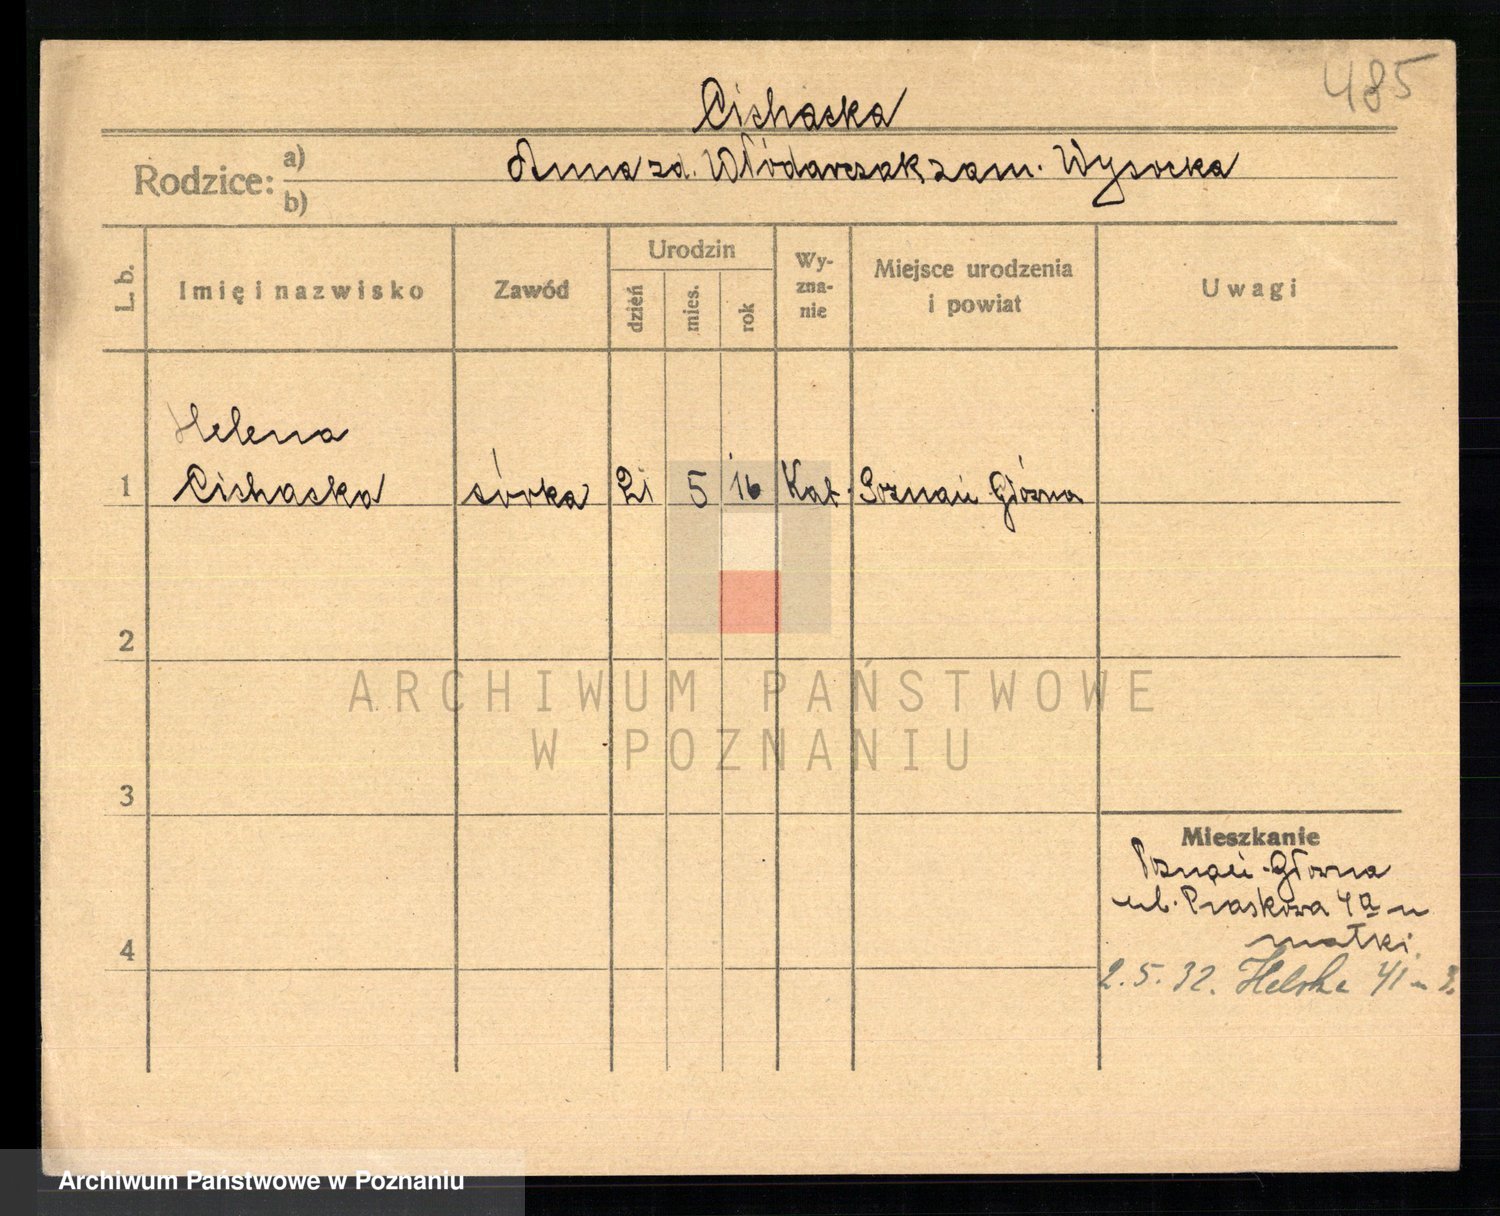 485
Cichacka
Rodzice: a) b)
Anna zd. Włódarczak zam. Wysocka
L. b.
Imię i nazwisko
Zawód
Urodzin
dzień
mies.
rok
Wy-
zna-
nie
Miejsce urodzenia
i powiat
Uwagi
Helena
1 Cichacka córka 21 5 16 Kat. Poznań Główna
2
ARCHIWUM PAŃSTWOWE
W POZNANIU
3
Mieszkanie
Poznań-Główna
ul. Piaskowa 4a u
matki.
4
2.5.32. Helska 41
Archiwum Państwowe w Poznaniu